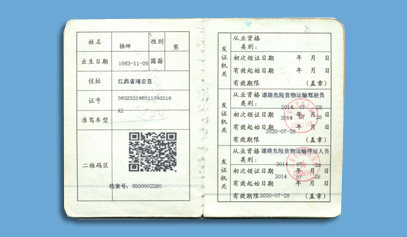 姓名 杨坤 性别 男
出生日期 1983-11-09 国籍
住址 江西省瑞安县
证号
准驾车型 A2
二维码区
档案号:
发证机关
从业资格
类别:
初次领证日期 年 月 日
有效起始日期 年 月 日
有效期限 (盖章)
发证机关
从业资格 道路危险货物运输驾驶员
类别:
初次领证日期 2014 07 28
有效起始日期 2014 07 28
有效期限 2020-07-28 (盖章)
发证机关
从业资格 道路危险货物运输押运人员
类别:
初次领证日期 2014 07 28
有效起始日期 2014 07 28
有效期限 2020-07-28 (盖章)